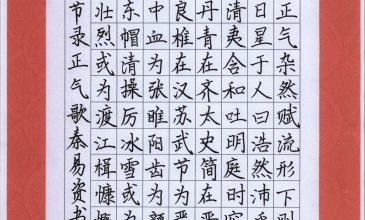 正气杂然赋流形下则
日星于人曰浩然沛乎
清夷含和吐明庭时穷
丹青在齐太史简在晋
良椎在汉苏武节为严
中血为张睢阳齿为颜
东帽清操厉冰雪或为
壮烈或为渡江楫慷慨
节录正气歌秦易资书